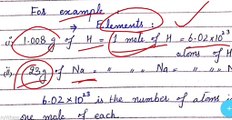 For example:
→ Elements:
i, 1.008g of H = 1 mole of H = 6.02×10²³
atoms of H
ii, 23g of Na " " " Na = " " N
6.02×10²³ is the number of atoms i
one mole of each.